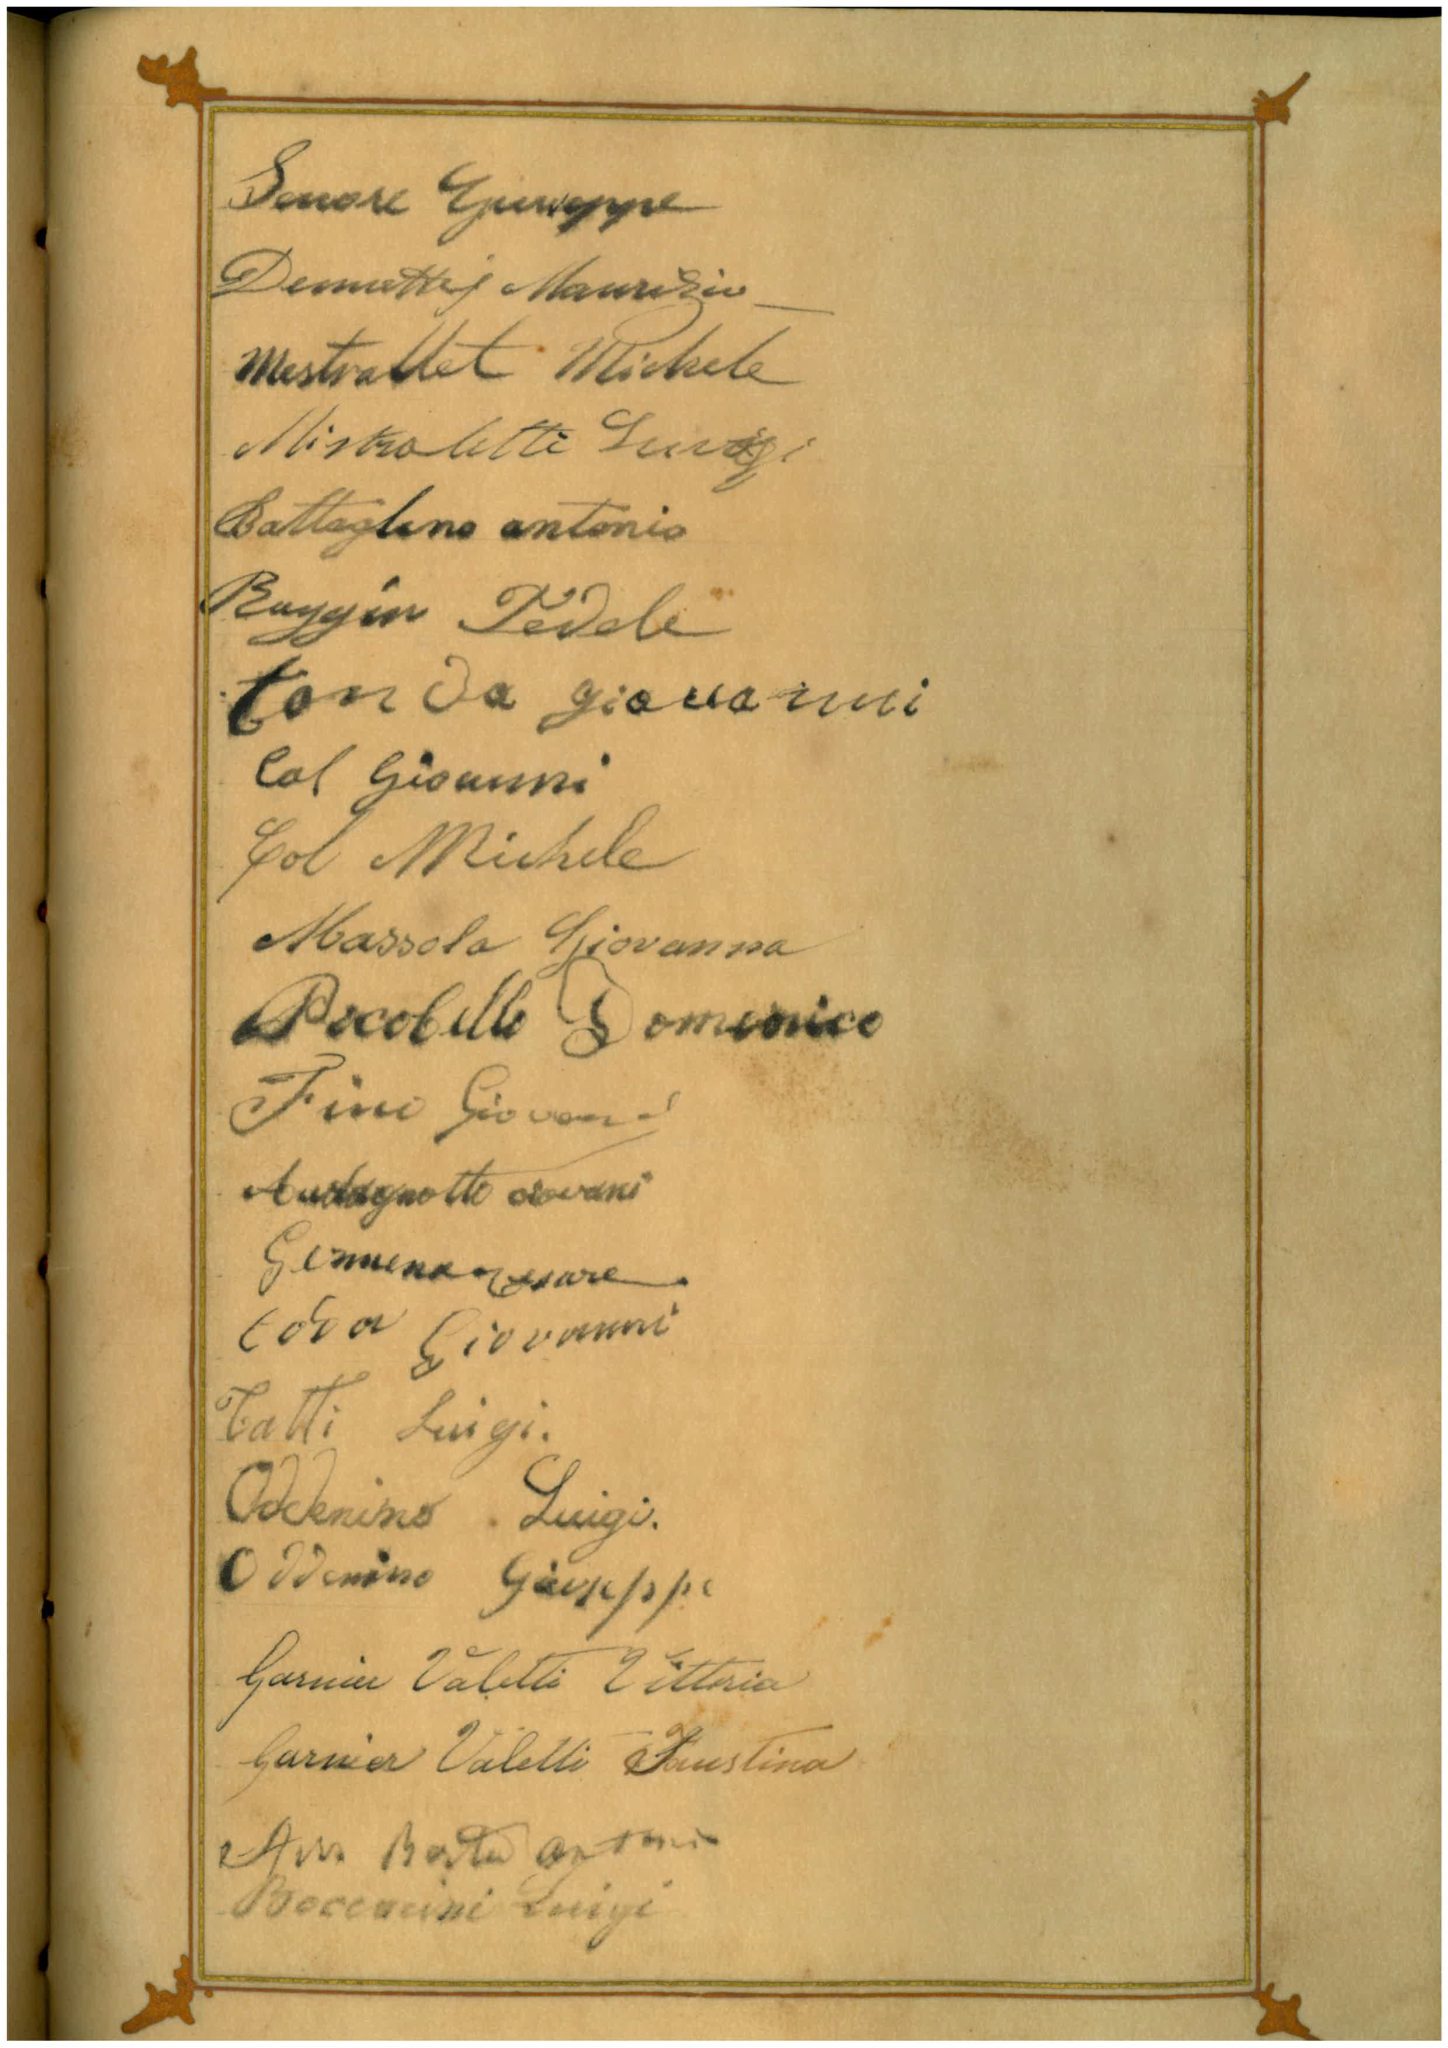 Senore Giuseppe
Demattei Maurizio
Mestrallet Michele
Mistraletti Luigi
Battaglino antonio
Fedele
tonda giovanni
Col Giovanni
Col Michele
Massola Giovanna
Picolello Domenico
Fino Giovani
Audagnotto Giovani
Gemmena Cesare
Giovanni
Tatti Luigi.
Oddenino Luigi.
Oddenino Giuseppe
Garnier Valetti Vittoria
Garnier Valetti Faustina
Antonio
Boccacini Luigi